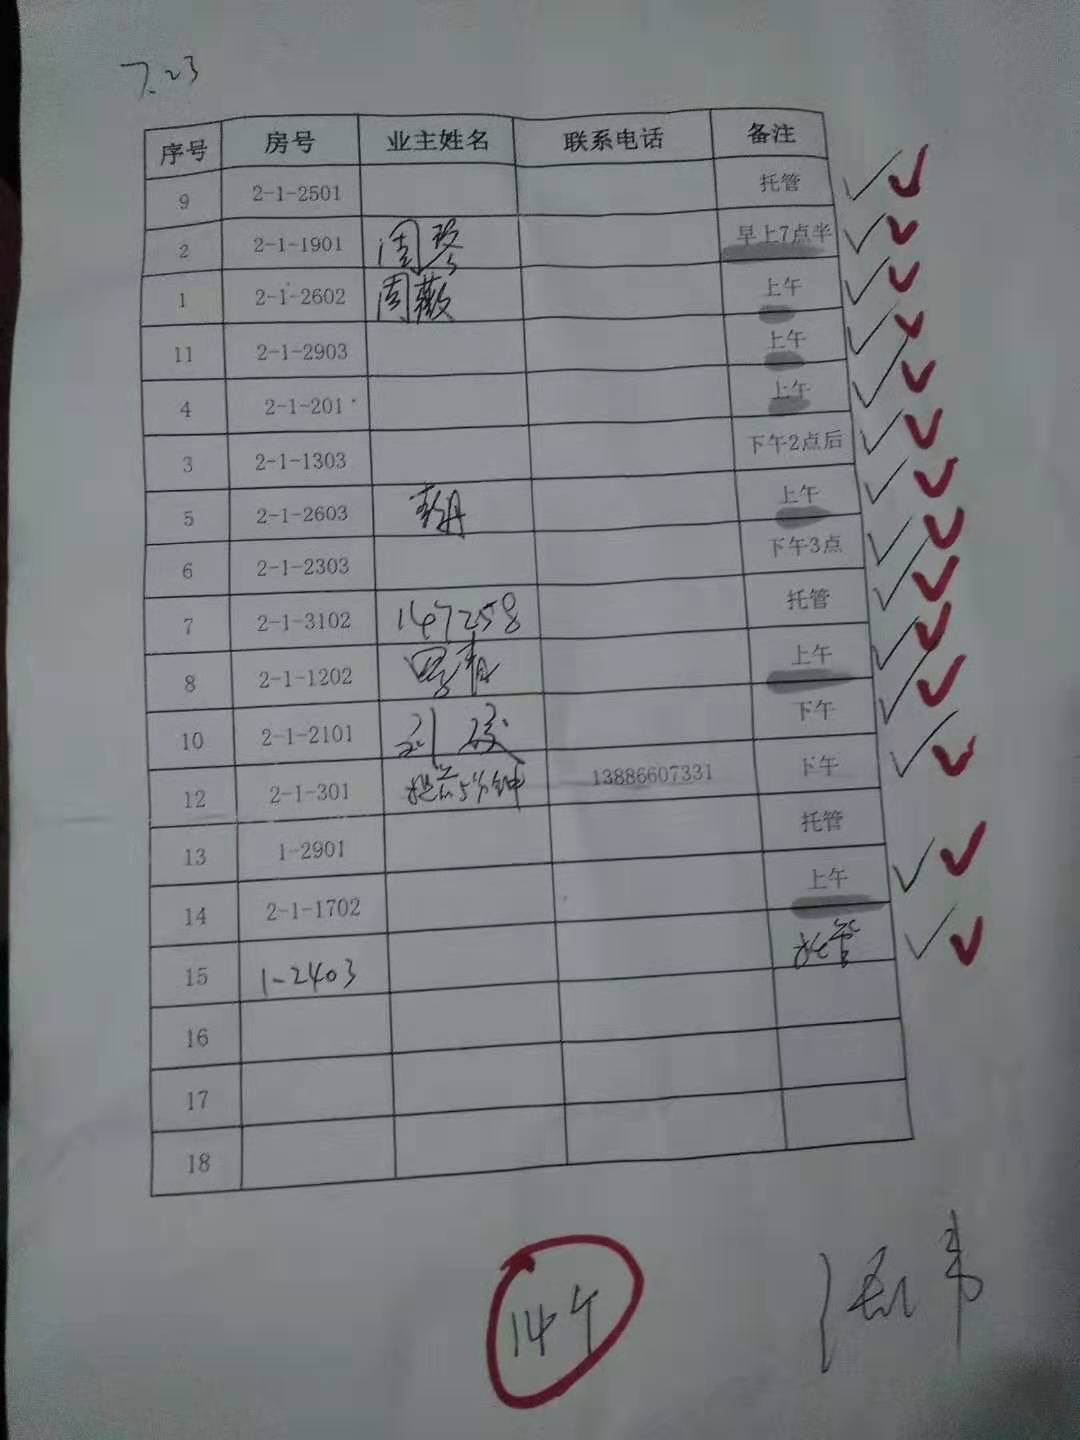 7.23
序号 房号 业主姓名 联系电话 备注
9 2-1-2501 托管
2 2-1-1901 周琴 早上7点半
1 2-1-2602 周薇 上午
11 2-1-2903 上午
4 2-1-201 上午
3 2-1-1303 下午2点后
5 2-1-2603 上午
6 2-1-2303 下午3点
7 2-1-3102 147258 托管
8 2-1-1202 上午
10 2-1-2101 下午
12 2-1-301 提前5分钟 13886607331 下午
13 1-2901 托管
14 2-1-1702 上午
15 1-2403 托管
16
17
18
14个